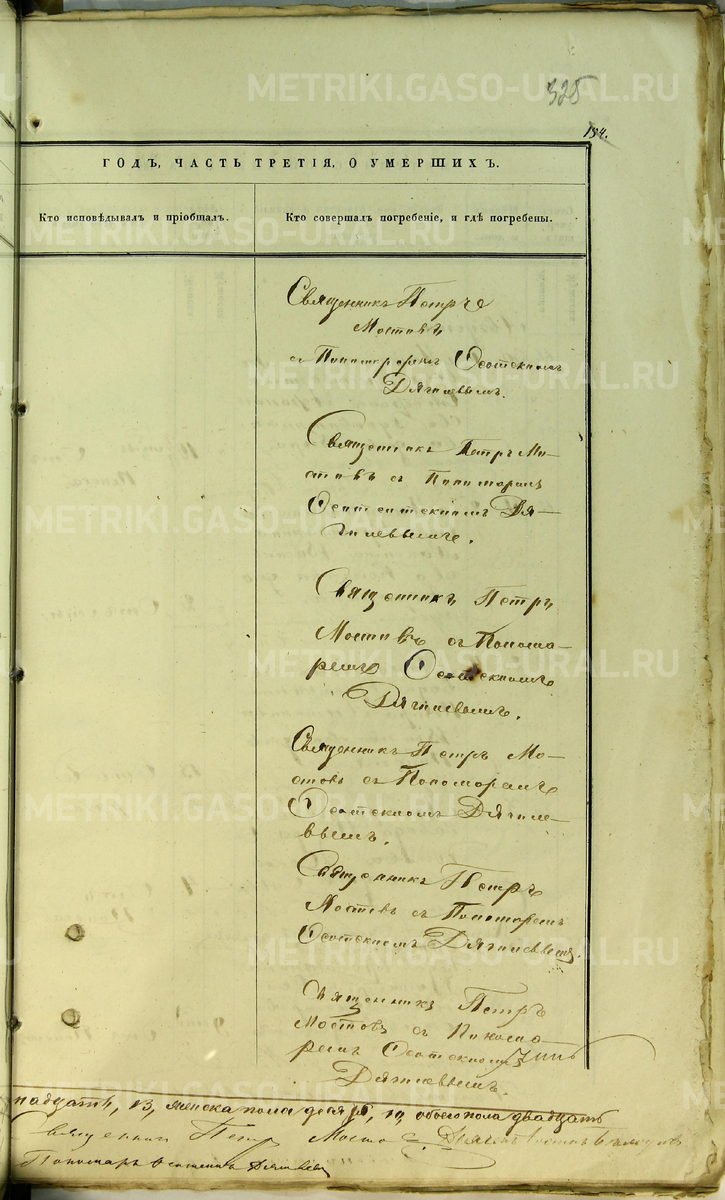 METRIKI.GASO-URAL.RU
325
194.
ГОДЪ, ЧАСТЬ ТРЕТІЯ, О УМЕРШИХЪ.
Кто исповѣдывалъ и пріобщалъ.
Кто совершалъ погребеніе, и гдѣ погребены.
Священникъ Петръ
Мостовъ
съ Пономоремъ
Дягилевымъ.
Священникъ Петръ Мо-
стовъ съ Пономоремъ
Дя-
гилевымъ.
Священникъ Петръ
Мостовъ съ Понома-
ремъ
Дягилевымъ.
Священникъ Петръ Мо-
стовъ съ Пономоремъ
Дягиле-
вымъ.
Священникъ Петръ
Мостовъ съ Пономаремъ
Дягилевымъ.
Священникъ Петръ
Мостовъ съ Понома-
ремъ
Дягилевымъ.
надцать, 13, женска пола обоего пола двадцать
Священникъ Петръ Мосто
Пономарь Дягилевъ